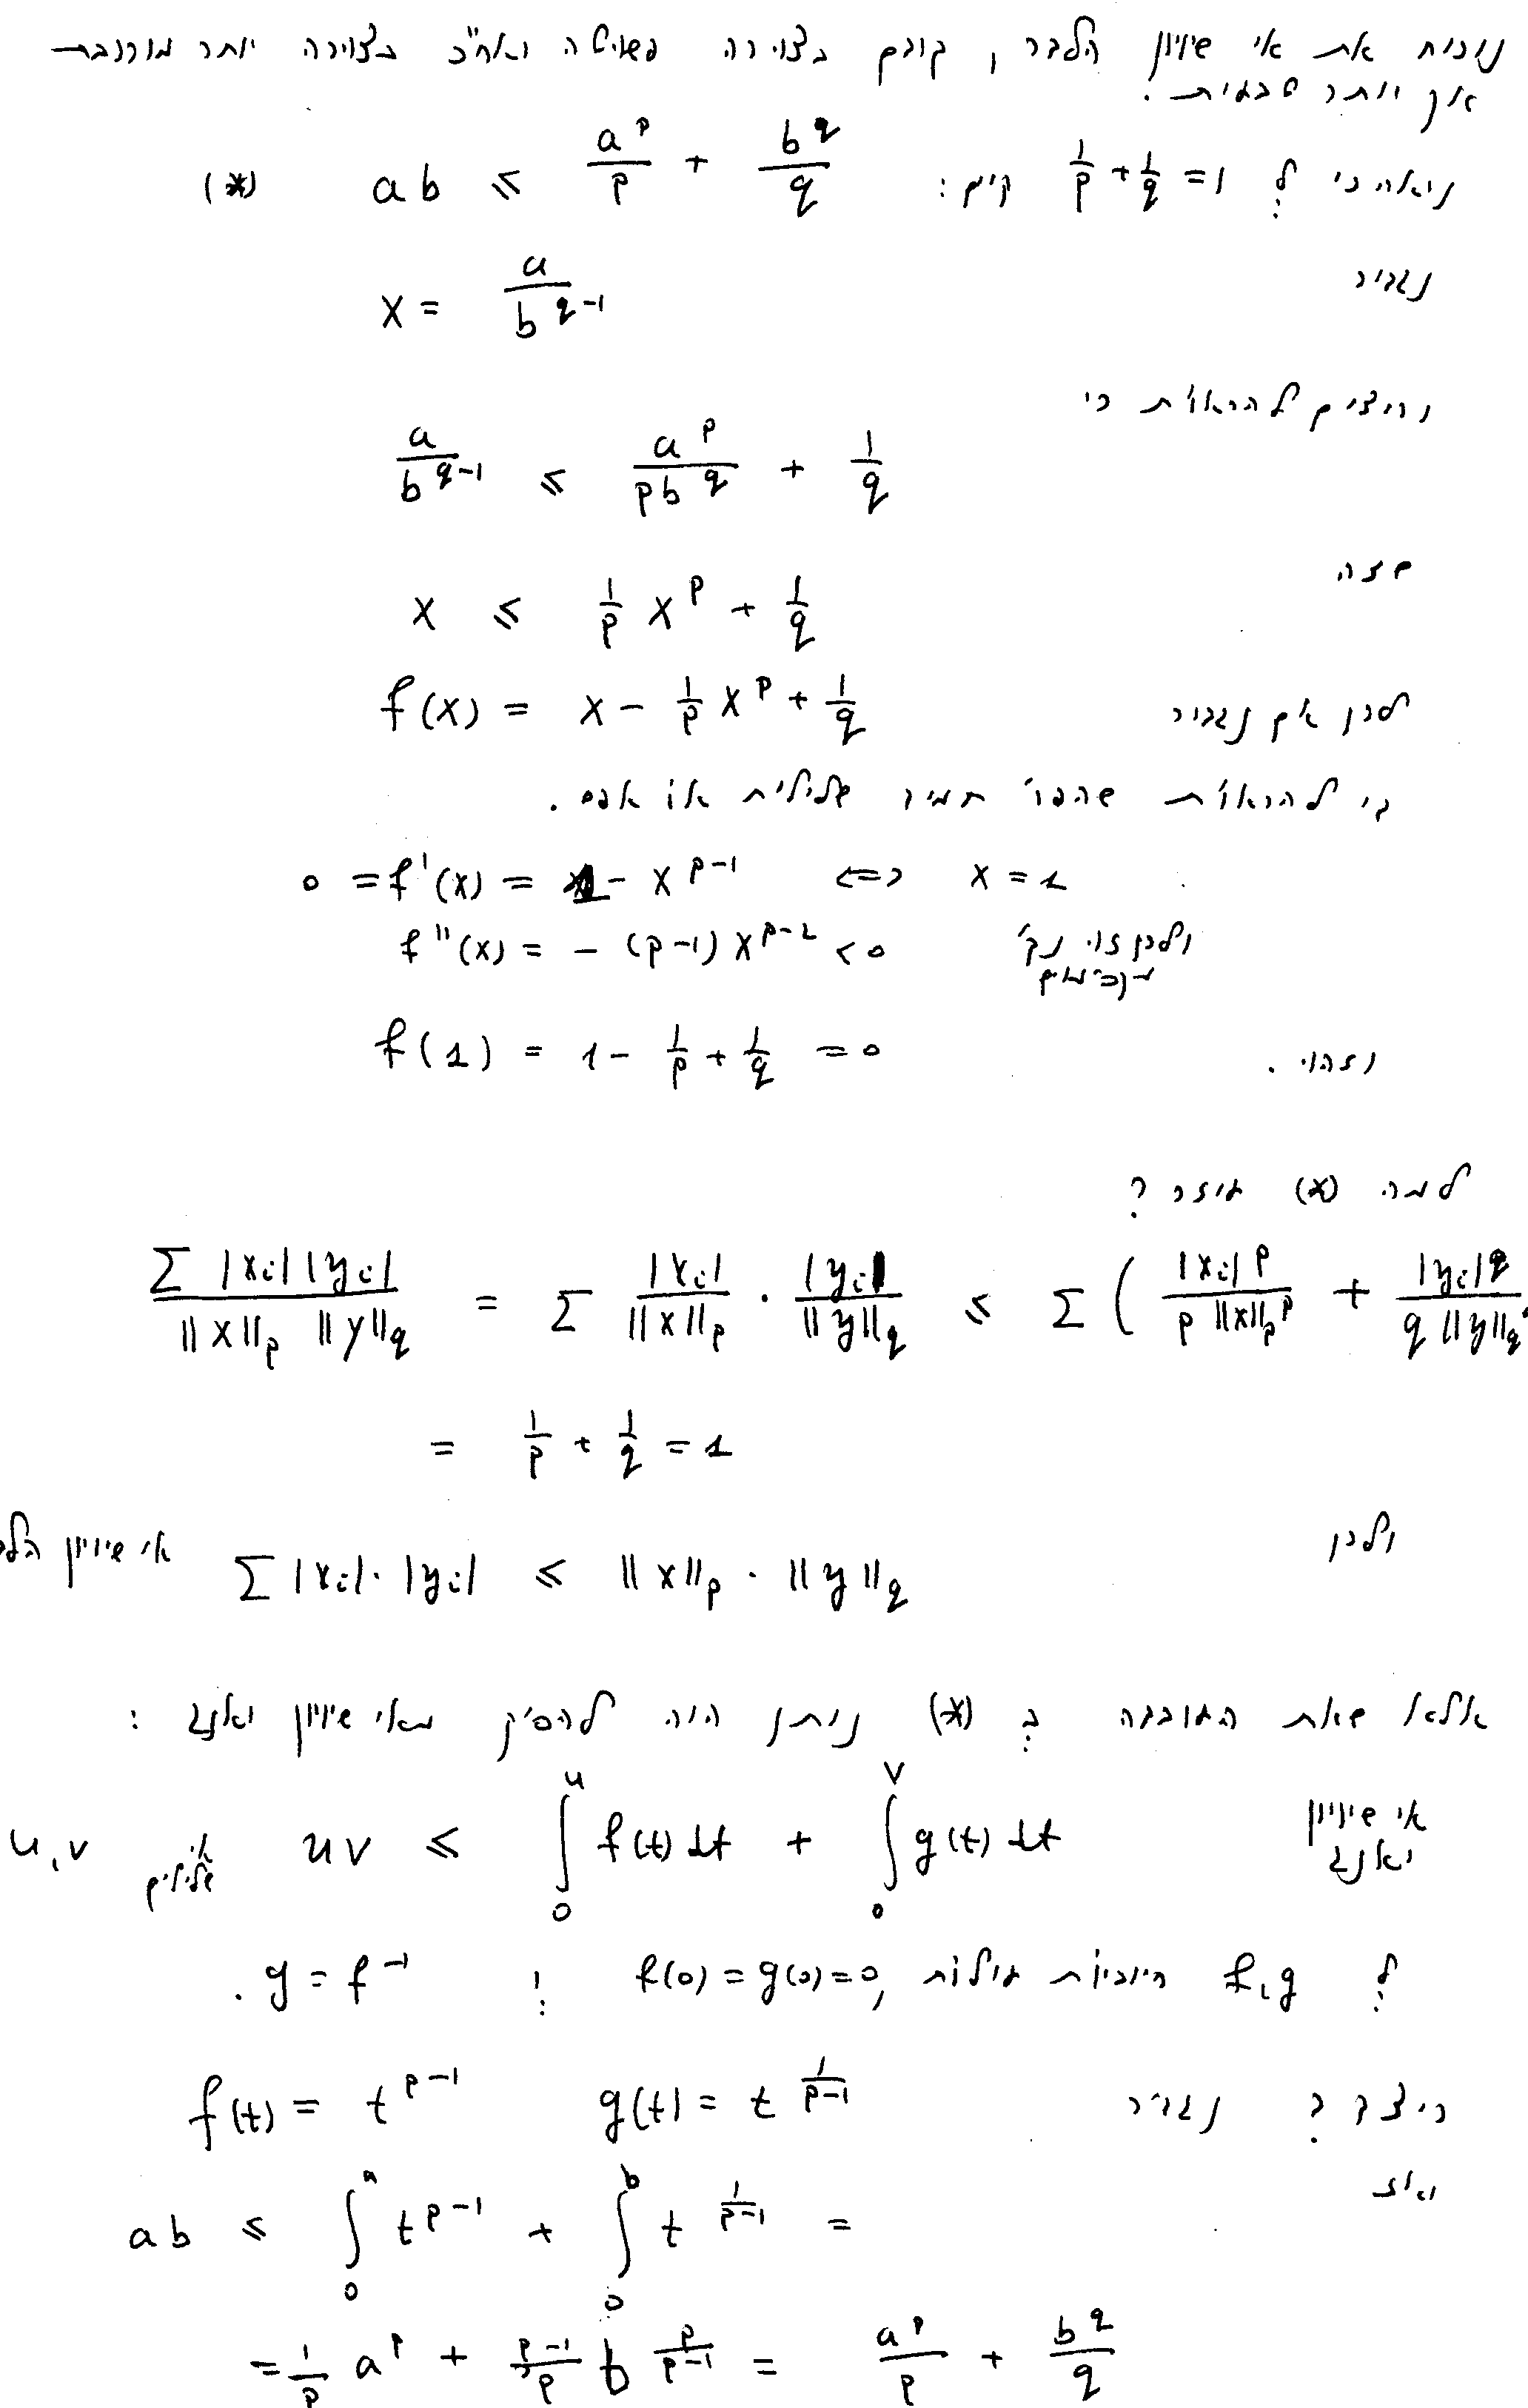 נוכיח את אי שיוויון הלדר, קודם בצורה פשוטה ואח"כ בצורה יותר מורכבת
אך יותר טבעית.
נראה כי ל: 1/p + 1/q = 1 קיים: ab ≤ a^p/p + b^q/q (*)
נגדיר x = a/b^(q-1)
רוצים להראות כי
a/b^(q-1) ≤ a^p/(pb^q) + 1/q
שזה
x ≤ 1/p x^p + 1/q
לכן אם נגדיר f(x) = x - 1/p x^p + 1/q
די להראות שהפו' תמיד שלילית או אפס.
0 = f'(x) = 1 - x^(p-1) ⟺ x = 1
f''(x) = -(p-1) x^(p-2) < 0 ולכן זוהי נק'
מקסימום
f(1) = 1 - 1/p + 1/q = 0 וזהו.
למה (*) עוזר ?
Σ|x_i||y_i| / (‖x‖_p ‖y‖_q) = Σ |x_i|/‖x‖_p · |y_i|/‖y‖_q ≤ Σ ( |x_i|^p/(p‖x‖_p^p) + |y_i|^q/(q‖y‖_q^
= 1/p + 1/q = 1
ולכן Σ|x_i|·|y_i| ≤ ‖x‖_p · ‖y‖_q אי שיוויון הלד
אלא שאת העובדה ב: (*) ניתן היה להסיק מאי שיוויון יאנג :
אי שיוויון
יאנג uv ≤ ∫_0^u f(t)dt + ∫_0^v g(t)dt u,v אי
שליליים
ל: f,g חיוביות עולות, f(0)=g(0)=0 ו: g = f^(-1).
כיצד ? נגדיר f(t) = t^(p-1) g(t) = t^(1/(p-1))
ואז
ab ≤ ∫_0^a t^(p-1) + ∫_0^b t^(1/(p-1)) =
= 1/p a^p + (p-1)/p b^(p/(p-1)) = a^p/p + b^q/q